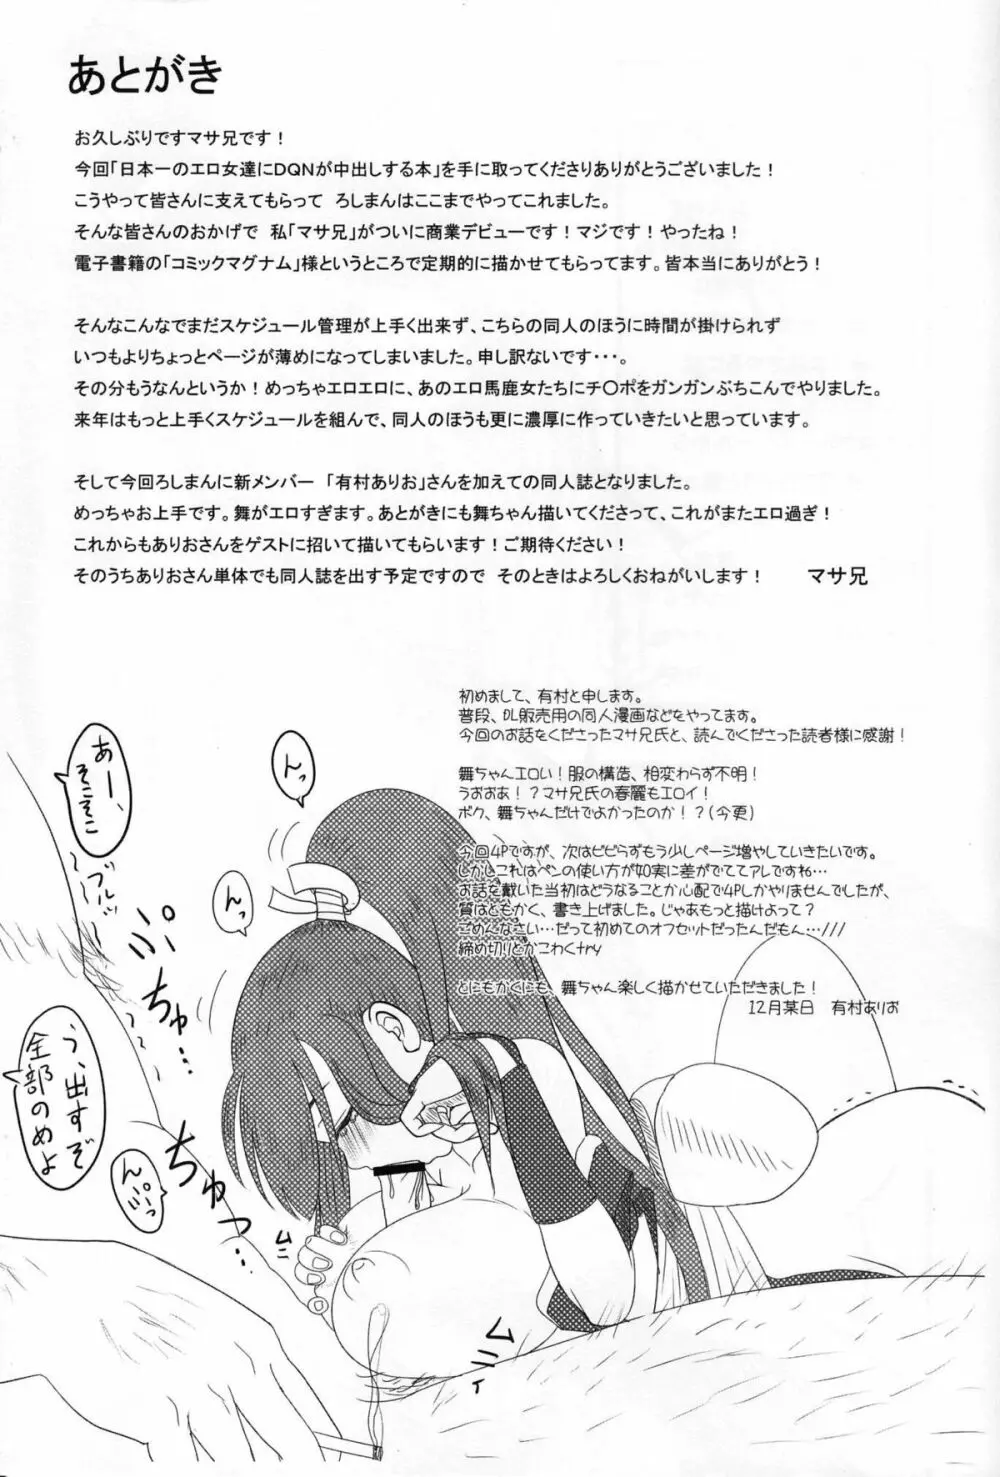 あとがき
お久しぶりですマサ兄です！
今回「日本一のエロ女達にDQNが中出しする本」を手に取ってくださりありがとうございました！
こうやって皆さんに支えてもらって　ろしまんはここまでやってこれました。
そんな皆さんのおかげで　私「マサ兄」がついに商業デビューです！マジです！やったね！
電子書籍の「コミックマグナム」様というところで定期的に描かせてもらってます。皆本当にありがとう！
そんなこんなでまだスケジュール管理が上手く出来ず、こちらの同人のほうに時間が掛けられず
いつもよりちょっとページが薄めになってしまいました。申し訳ないです･･･。
その分もうなんというか！めっちゃエロエロに、あのエロ馬鹿女たちにチ〇ポをガンガンぶちこんでやりました。
来年はもっと上手くスケジュールを組んで、同人のほうも更に濃厚に作っていきたいと思っています。
そして今回ろしまんに新メンバー　「有村ありお」さんを加えての同人誌となりました。
めっちゃお上手です。舞がエロすぎます。あとがきにも舞ちゃん描いてくださって、これがまたエロ過ぎ！
これからもありおさんをゲストに招いて描いてもらいます！ご期待ください！
そのうちありおさん単体でも同人誌を出す予定ですので　そのときはよろしくおねがいします！　　マサ兄
初めまして、有村と申します。
普段、DL販売用の同人漫画などをやってます。
今回のお話をくださったマサ兄氏と、読んでくださった読者様に感謝！
舞ちゃんエロい！服の構造、相変わらず不明！
うおおあ！？マサ兄氏の春麗もエロイ！
ボク、舞ちゃんだけでよかったのか！？（今更）
今回4Pですが、次はビビらずもう少しページ増やしていきたいです。
しかしこれはペンの使い方が如実に差がでててアレですね…
お話を戴いた当初はどうなることか心配で4Pしかやりませんでしたが、
質はともかく、書き上げました。じゃあもっと描けよって？
ごめんなさい…だって初めてのオフセットだったんだもん…///
締め切りとかこわくtry
とにもかくにも、舞ちゃん楽しく描かせていただきました！
12月某日　有村ありお
あー、
そこそこ
ブルッ
んっ
んっ
ちゅ…
う、出すぞ
全部のめよ
ちゅっ…
ムニ
ムニィ